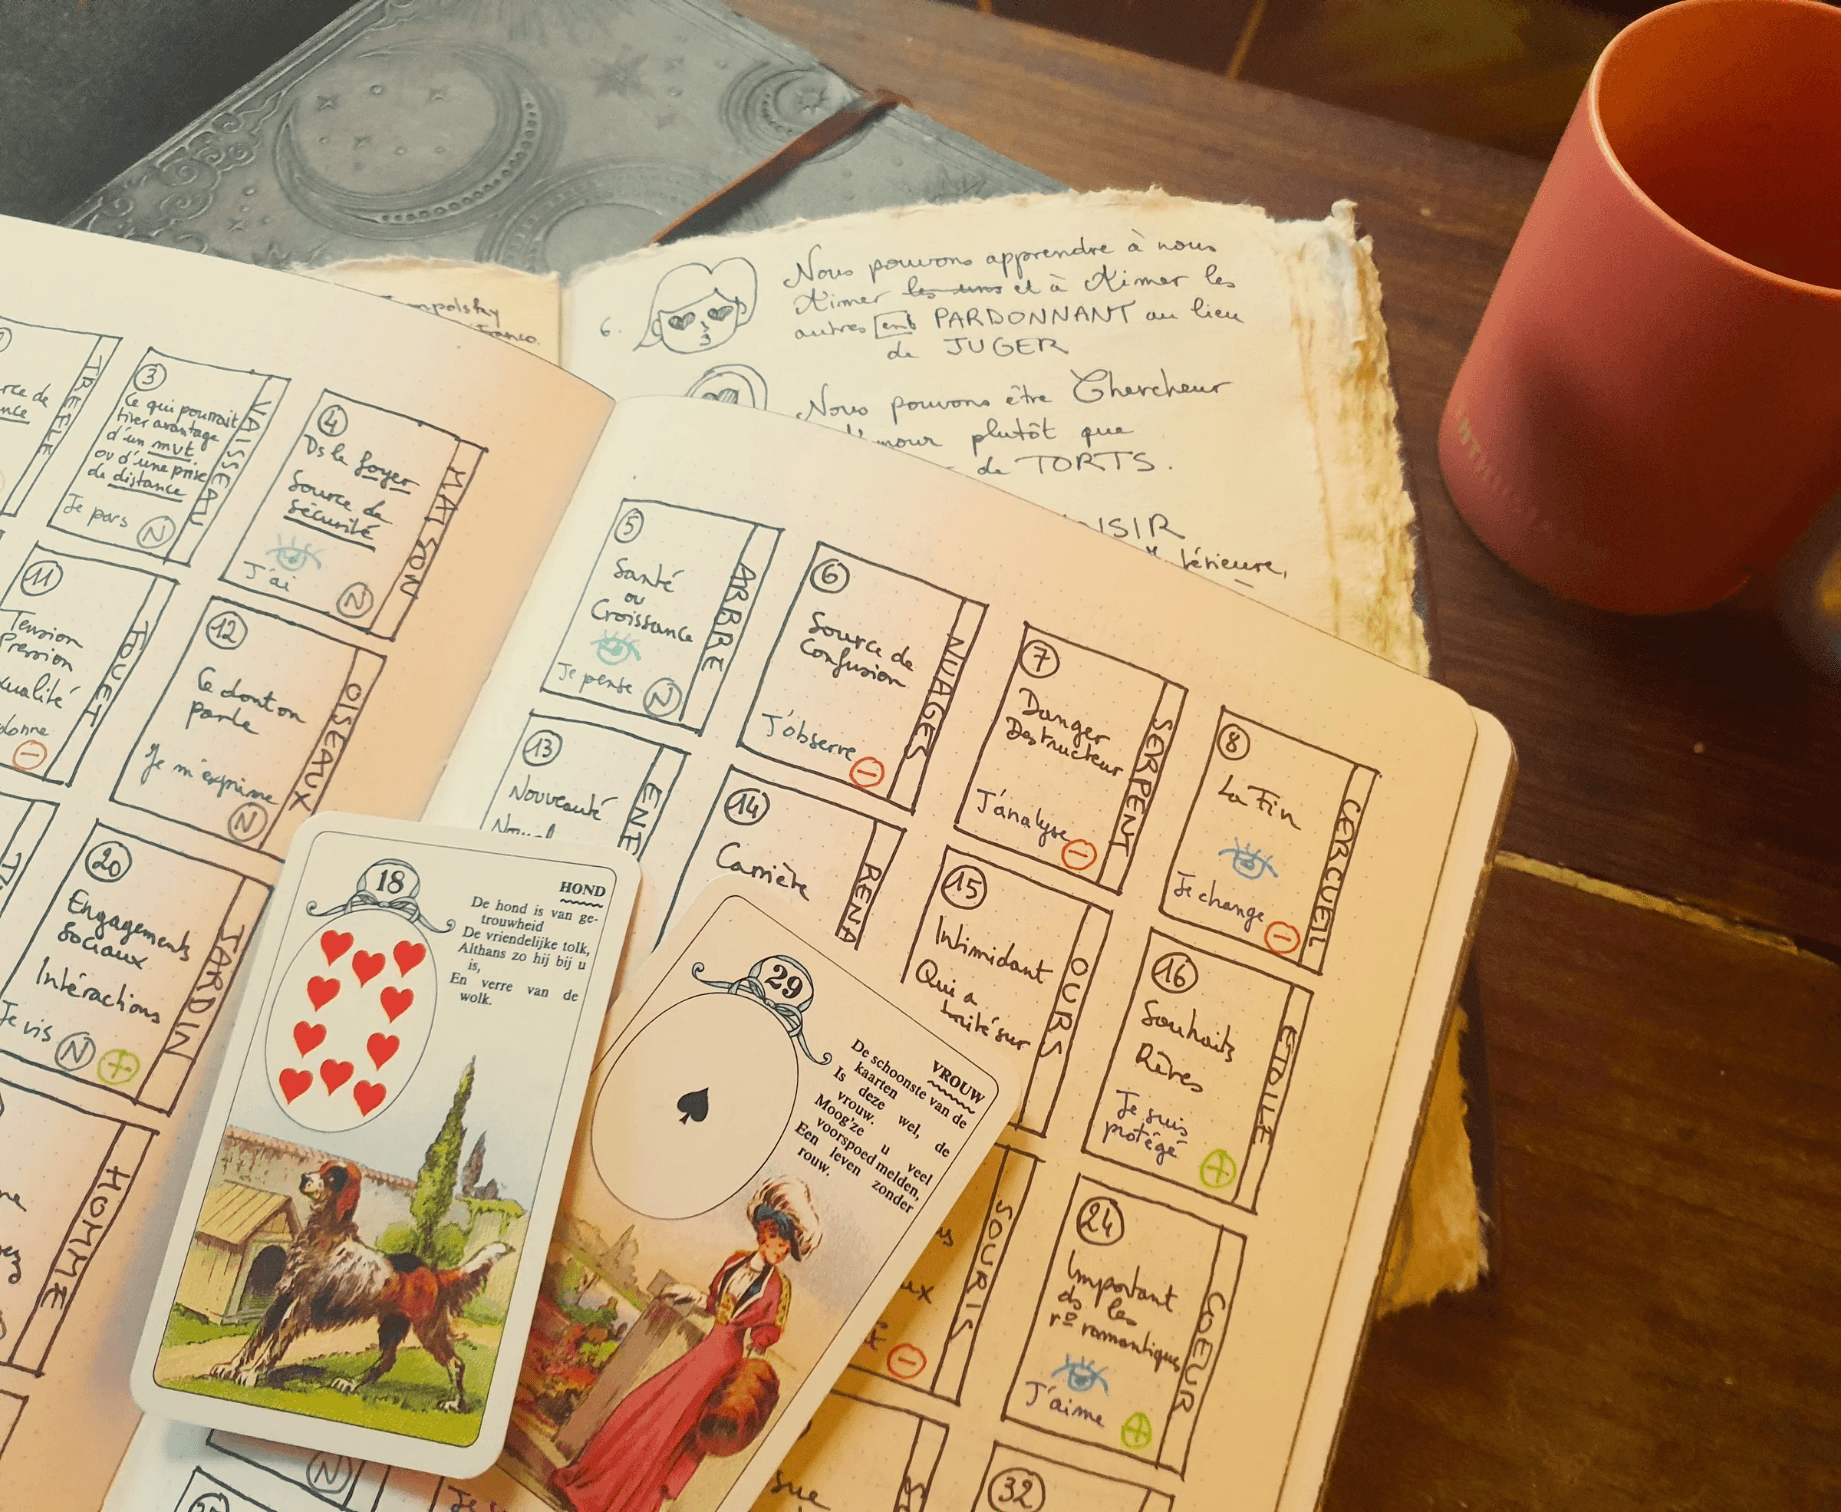 6.
Nous pouvons apprendre à nous
Aimer les uns et à Aimer les
autres en PARDONNANT au lieu
de JUGER
Nous pouvons être Chercheur
plutôt que
de TORTS.
TREFLE
3
Ce qui pourrait
tirer avantage
d'un mvt
ou d'une prise
de distance
Je pars
N
VAISSEAU
4
Ds le foyer
Source de
sécurité
J'ai
N
MAISON
5
Santé
ou
Croissance
Je pense
N
ARBRE
6
Source de
Confusion
J'observe
NUAGES
7
Danger
Destructeur
J'analyse
SERPENT
8
La Fin
Je change
CERCUEIL
11
Tension
Pression
FOUET
12
Ce dont on
parle
Je m'exprime
N
OISEAUX
13
Nouveauté
14
Carrière
RENA
15
Intimidant
Qui a
OURS
16
Souhaits
Rêves
Je suis
protégé
ETOILE
20
Engagements
Sociaux
Intéractions
Je vis
N
JARDIN
HOMME
SOURIS
24
Important
ds les
r° romantiques
J'aime
COEUR
N
32
18
HOND
De hond is van ge-
trouwheid
De vriendelijke tolk,
Althans zo hij bij u
is,
En verre van de
wolk.
29
VROUW
De schoonste van de
kaarten
Is deze wel, de
vrouw.
Moog'ze u veel
voorspoed melden,
Een leven zonder
rouw.